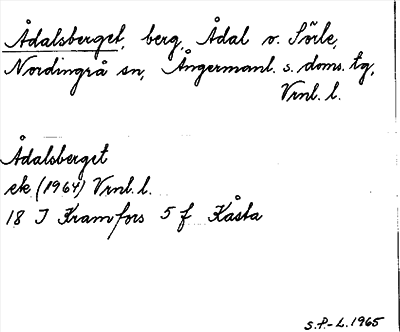 Ådalsberget, berg, Ådal v. Sörle,
Nordingrå sn, Ångermanl. s. doms. tg,
Vrnl. l.
Ådalsberget
ek (1964) Vrnl. l.
18 I Kramfors 5 f Kåsta
S.P-L. 1965